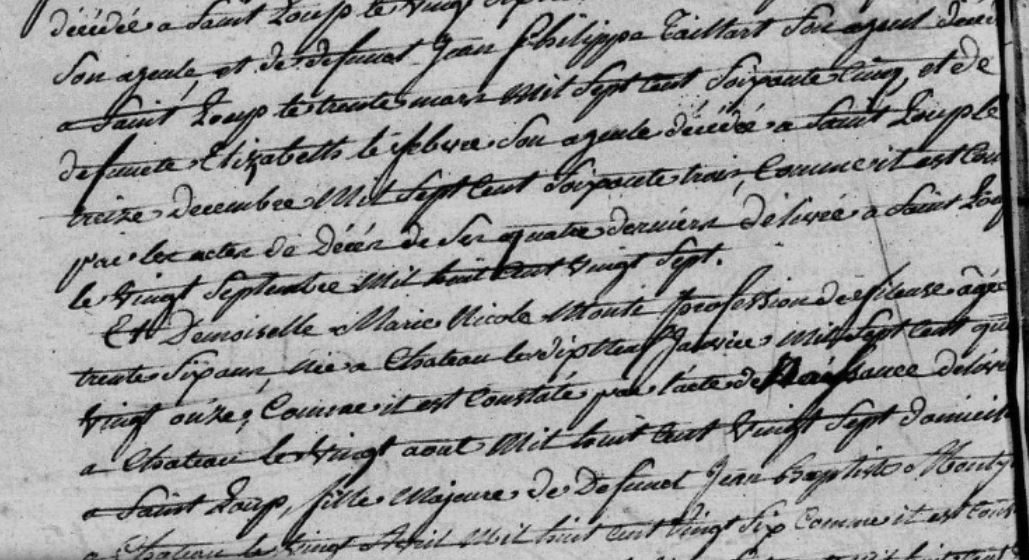 décédée a Saint Loup le vingt
Son ayeule et de defunct Jean Philippe Taillart Son ayeul décé
a Saint Loup le trente mars Mil Sept Cent Soixante Cinq, et de
defuncte Elizabeth le febvre Son ayeule décédée a Saint Loup le
treize Decembre Mil Sept Cent Soixante trois, Comme it est Con
par les actes de Décés de Ses quatre derniers délivré a Saint Lou
le Vingt Septembre Mil huit Cent Vingt Sept.
Et Demoiselle Marie Nicole Profession de fileuse agée
trente Six ans née a Chateau le dix Neuf Janvier Mil Sept Cent qua
Vingt onze; Comme it est Constaté par l'acte de Naissance deliv
a Chateau le Vingt aout Mil huit Cent Vingt Sept domicili
a Saint Loup, fille Majeure de Defunct Jean Baptiste
a Chateau le Vingt Avril Mil huit Cent Vingt Six Comme it est Cons